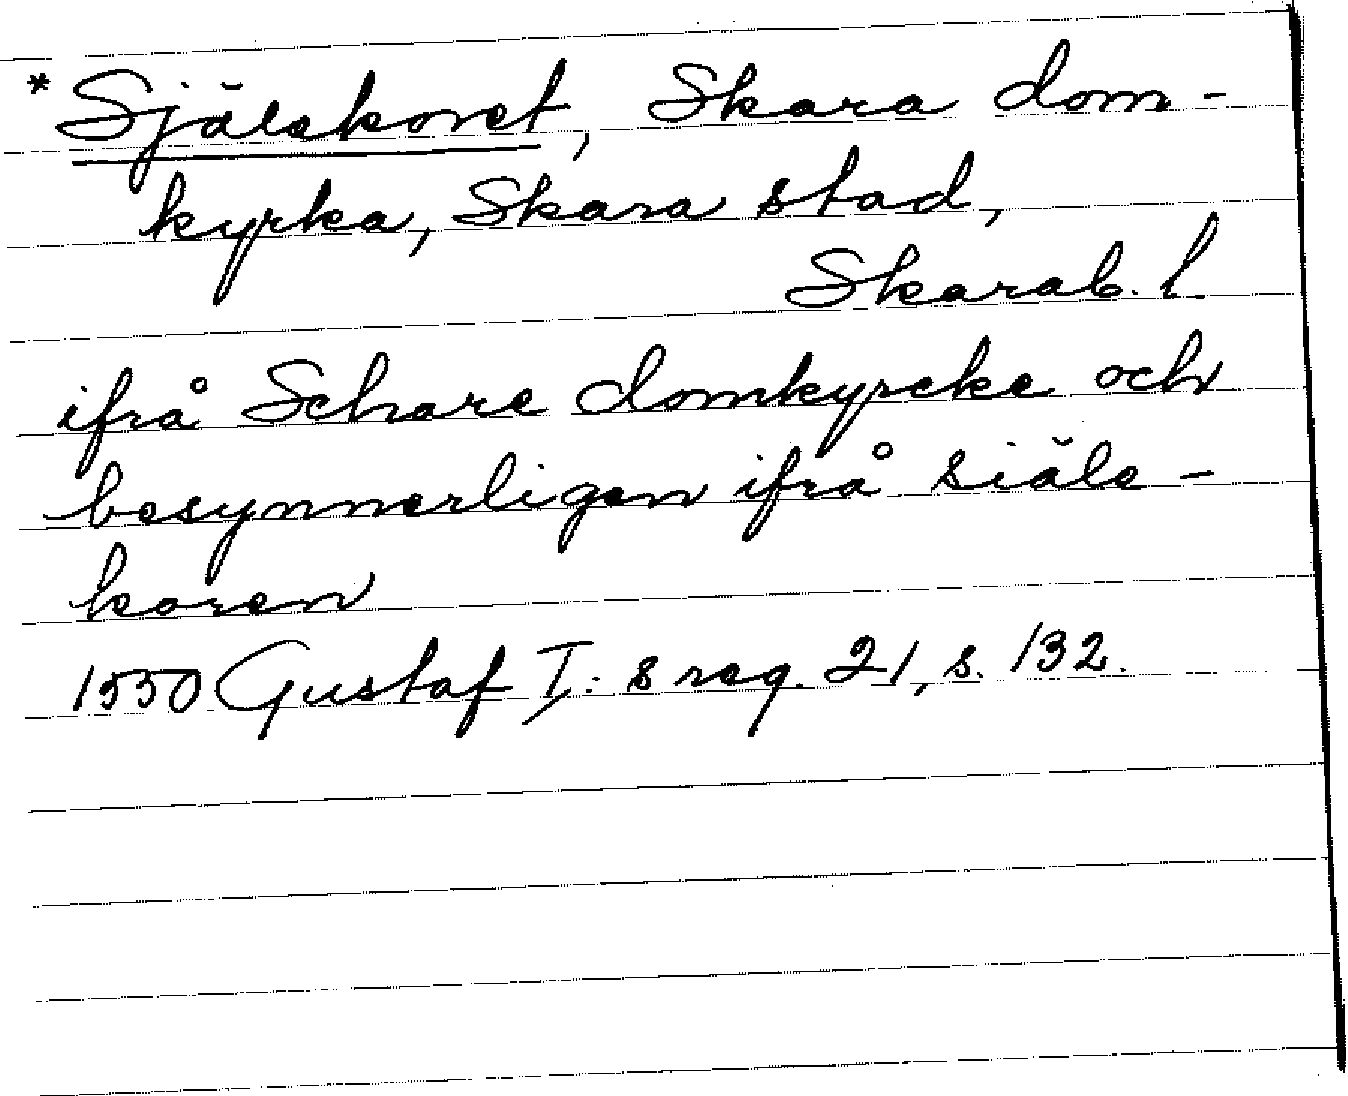 * Själekoret, Skara dom-
kyrka, Skara stad,
Skarab. l
ifrå Schare domkyrcke och
besynnerligen ifrå siäle-
koren
1550 Gustaf I:s reg. 21, s. 132.